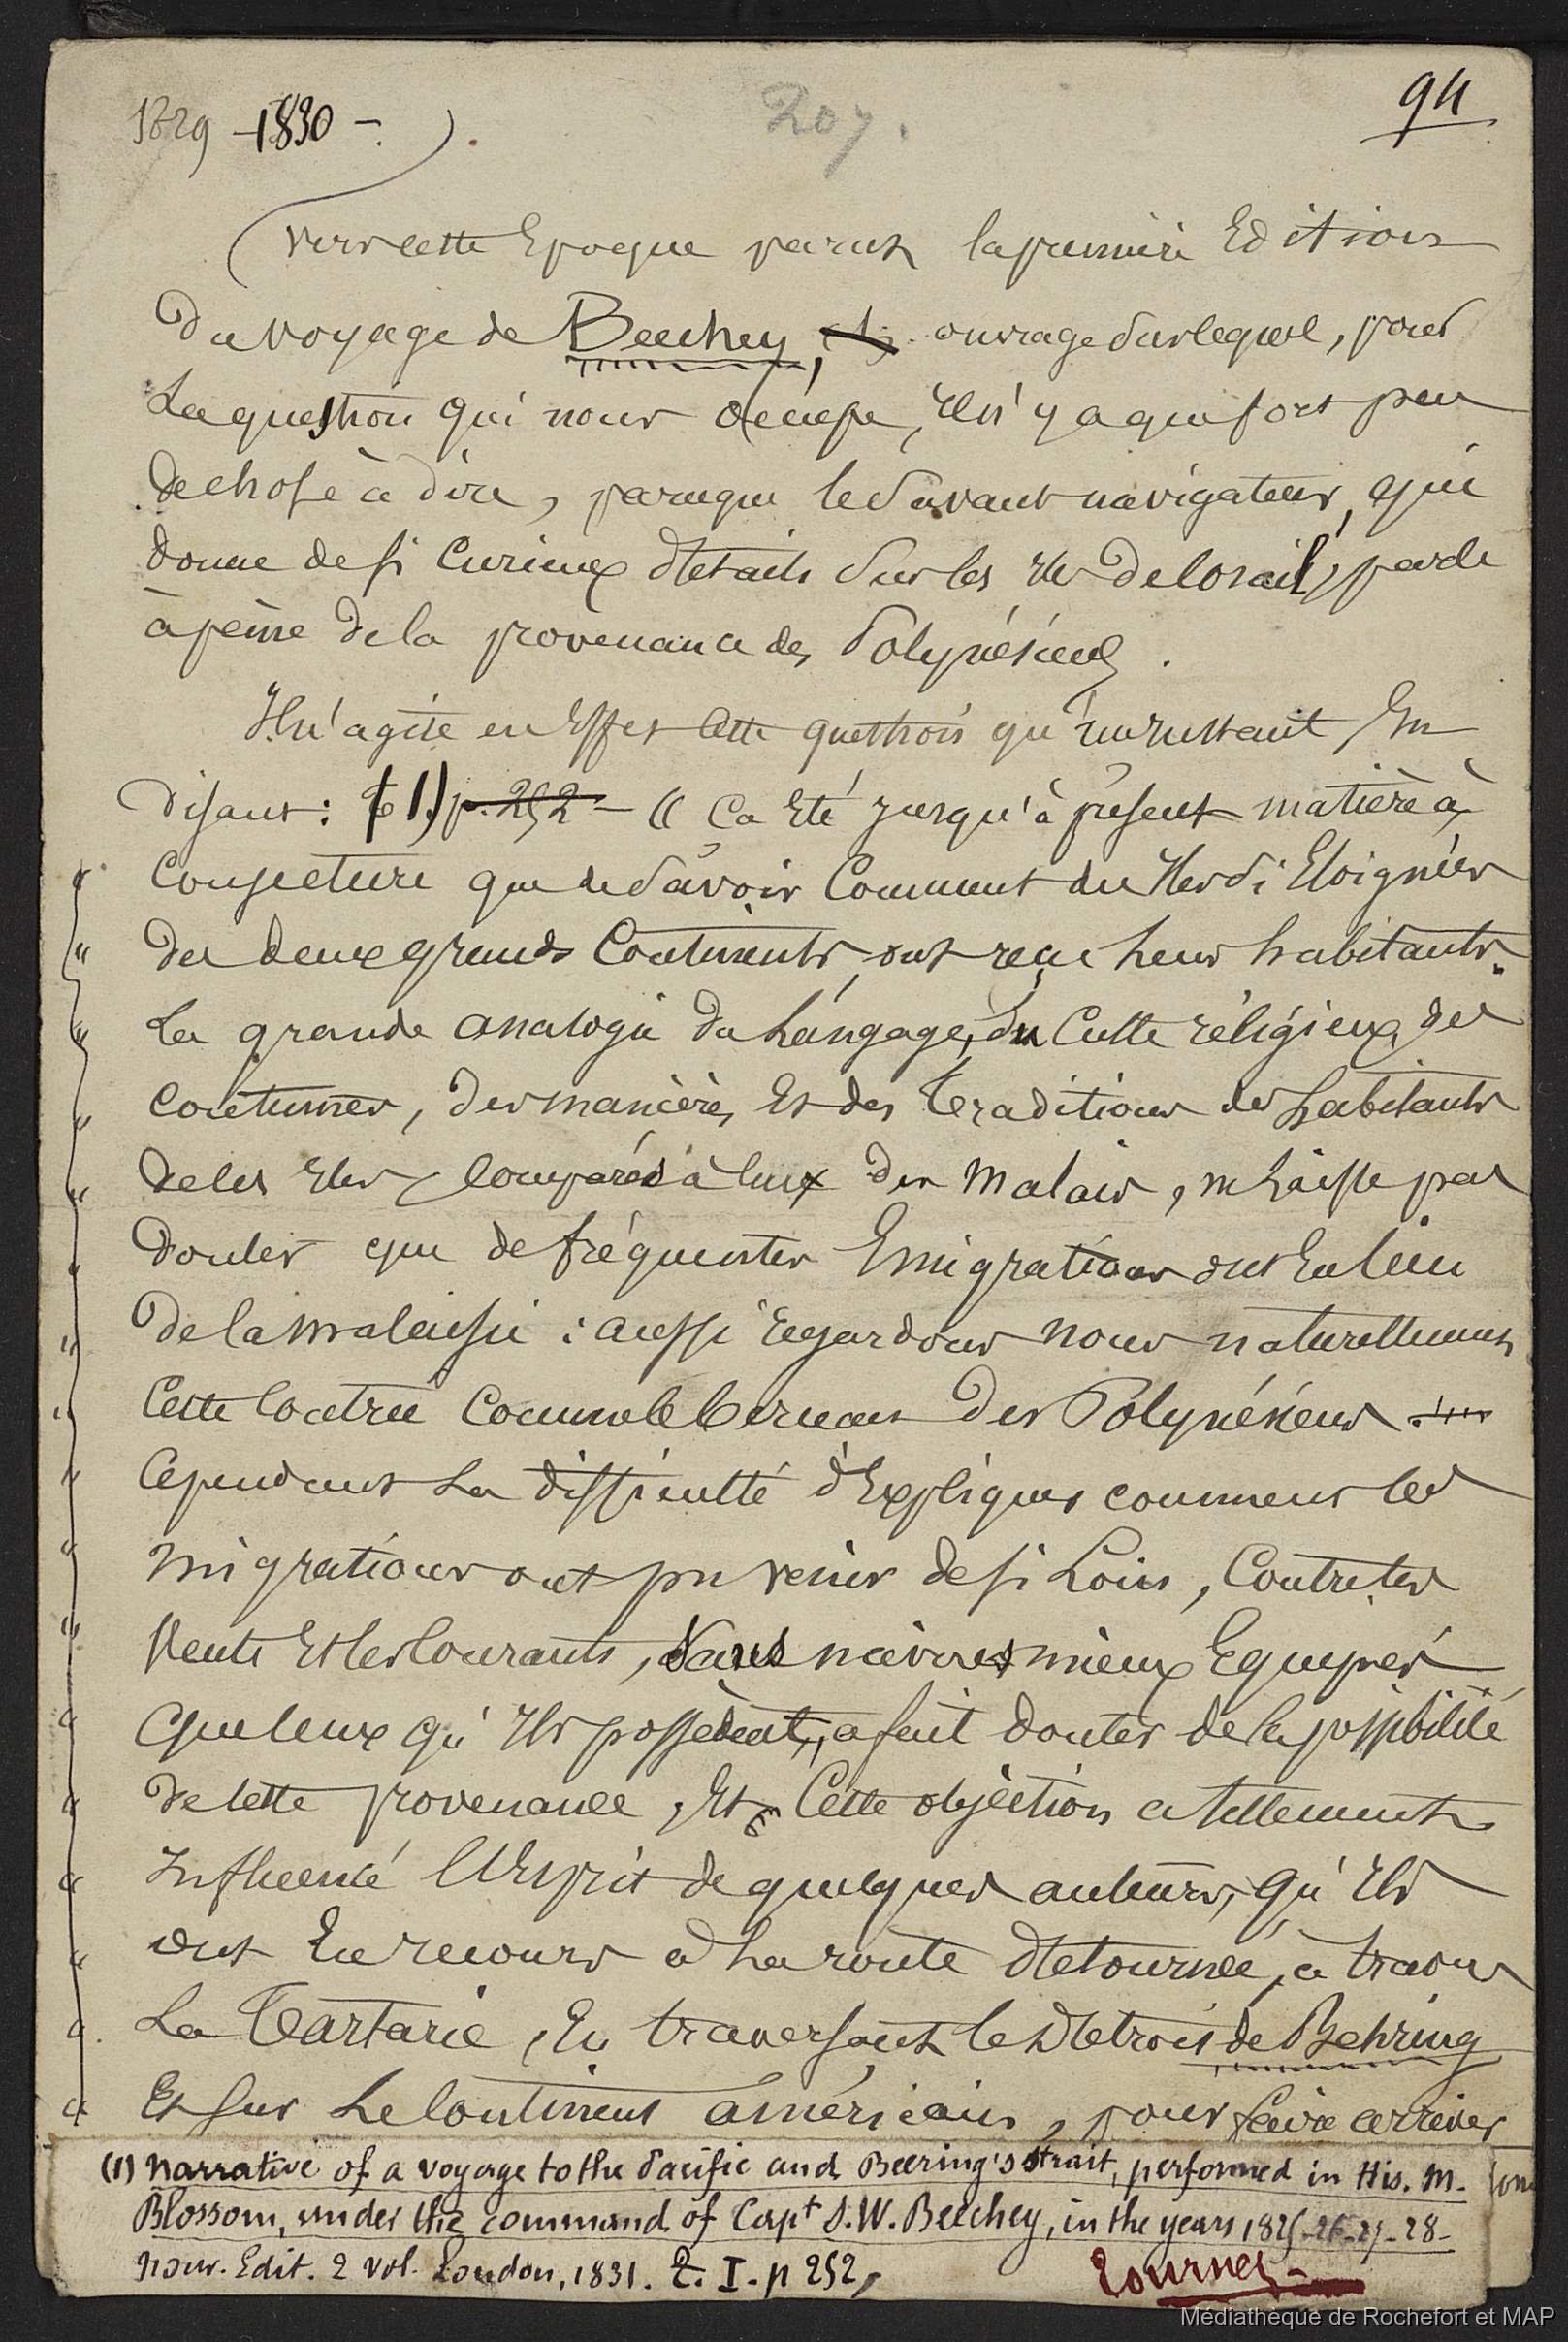 1829 - 1830 -
207.
94
Vers cette Epoque parut la première Edition
Du voyage de Beechey, ouvrage sur lequel, pour
La question qui nous occupe, Il n'y a que fort peu
de chose à dire, parceque le savant navigateur, qui
donne de si Curieux détails sur les Iles de Corail, parle
à peine de la provenance des Polynésiens.
Il n'agite en Effet cette question qu'un instant, En
disant: (1) p. 252 - « Ca Eté jusqu'à présent matière à
Conjecture que de savoir Comment des Iles si Eloignées
des deux grands Continents, ont reçu leurs habitants.
La grande analogie du Langage, du Culte réligieux, des
coutumes, des manières, Et des Traditions des habitants
de ces Iles, Comparés à ceux des Malais, ne Laisse pas
douter que de fréquentes Emigrations ont Eu lieu
de la Malaisie : aussi regardons nous naturellement
Cette Contrée Comme le berceau des Polynésiens.
Cependant La difficulté d'Expliquer comment les
migrations ont pu venir de si Loin, Contre les
Vents Et les Courants, sans navires mieux Equipés
que ceux qu'Ils possèdent, a fait douter de la possibilité
de cette provenance, Et Cette objection a tellement
Influencé l'Esprit de quelques auteurs, qu'Ils
ont Eu recours à La route détournée, à travers
La Tartarie, En traversant le Détroit de Behring
Et sur Le Continent américain, pour faire arriver
(1) Narrative of a voyage to the Pacific and Beering's strait, performed in His. M.
Blossom, under the command of Capt F.W. Beechey, in the years 1825-26-27-28-
Nouv. Edit. 2 vol. London, 1831. T. I - p 252,
Tournez -
Médiathèque de Rochefort et MAP